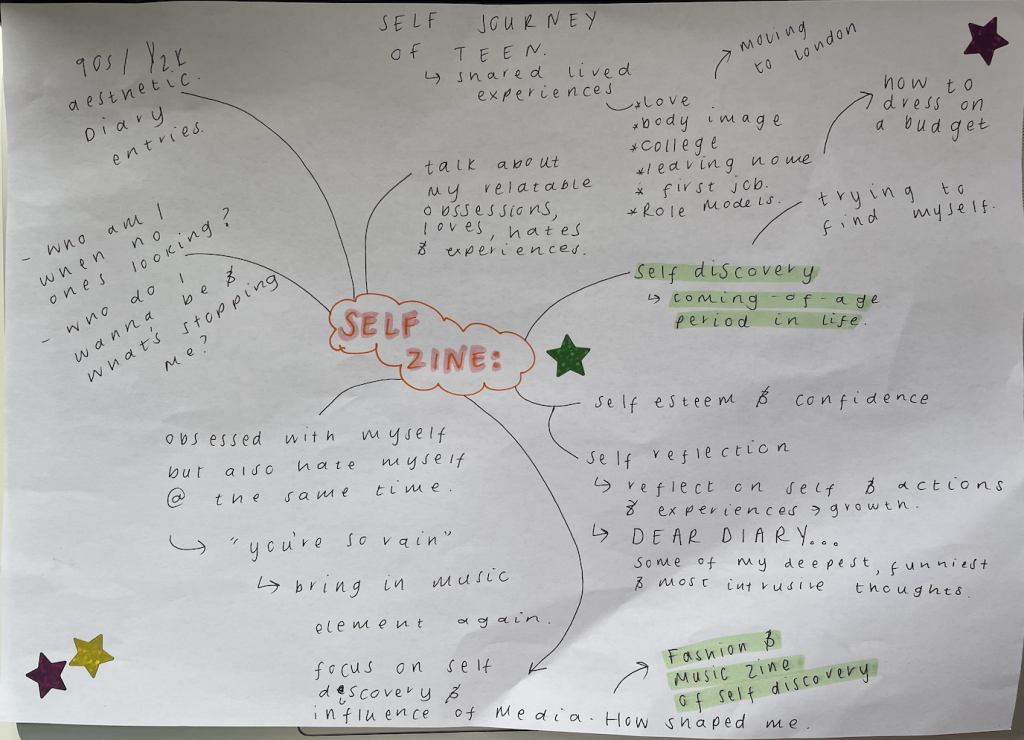 SELF JOURNEY
OF TEEN.
↳ shared lived
experiences
*love
*body image
*college
*leaving home
* first job.
*Role Models.
moving
to london
how to
dress on
a budget
trying to
find myself.
90s / Y2K
aesthetic.
Diary
entries.
talk about
my relatable
obssessions,
loves, hates
& experiences.
- who am I
when no
ones looking?
- who do I
wanna be &
what's stopping
me?
SELF
ZINE:
self discovery
↳ coming-of-age
period in life.
self esteem & confidence
self reflection
↳ reflect on self & actions
& experiences → growth.
↳ DEAR DIARY...
some of my deepest, funniest
& most intrusive thoughts.
obsessed with myself
but also hate myself
@ the same time.
↳ "you're so vain"
↳ bring in music
element again.
focus on self
discovery &
influence of media. How shaped me.
Fashion &
Music Zine
of self discovery